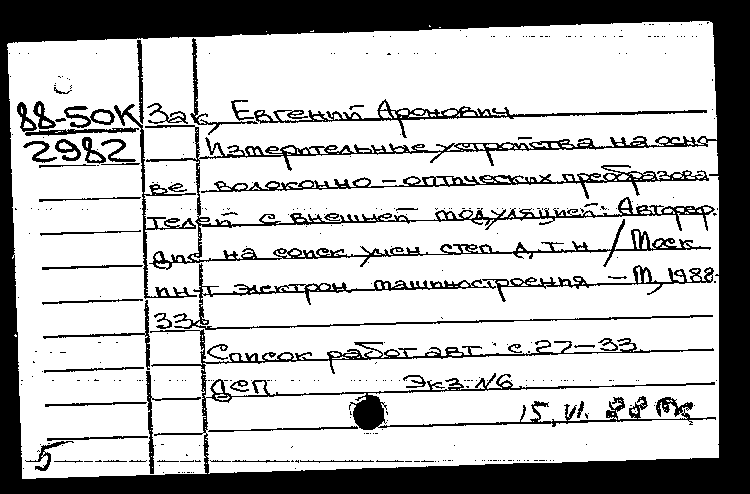 88-50К Зак, Евгений Аронович
2982 Измерительные устройства на осно-
ве волоконно-оптических преобразова-
телей с внешней модуляцией: Автореф.
дис на соиск учен. степ д.т.н / Моск
ин-т электрон. машиностроения - М, 1988-
33с
Список работ авт.: с.27-33.
ДСП. Экз. №6
15.VI. 88
5